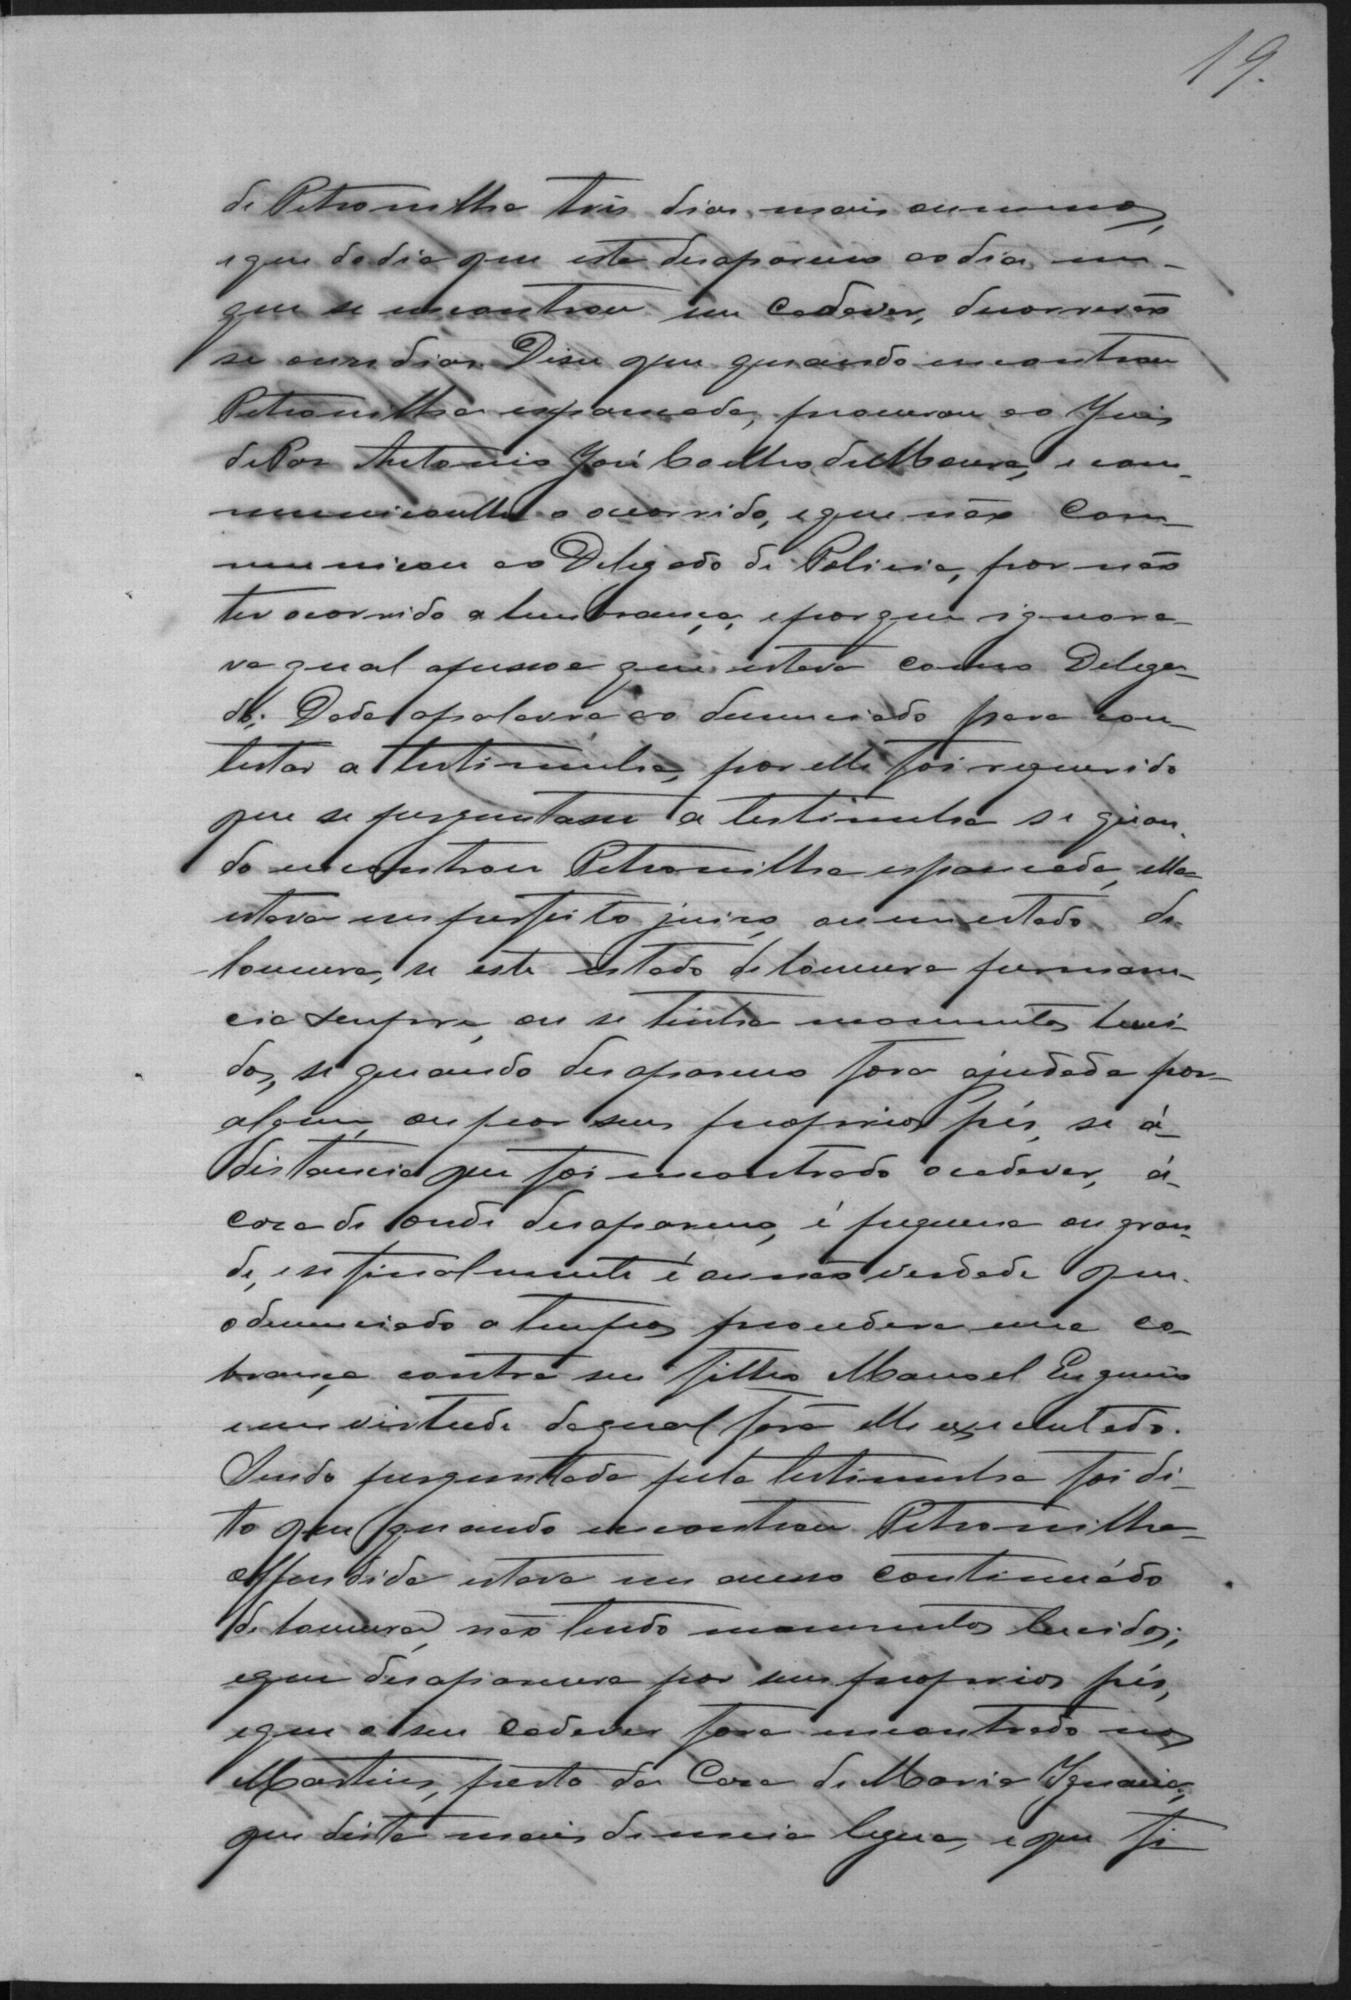 19.
de Petronilha três dias mais ou menos,
e que do dia que esta desapareceo ao dia em
que se encontrou seu Cadaver, decorrerão
se onse dias. Disse que quando encontrou
Petronilha espancada, procurou ao Juis
de Pas Antonio José Coelho de Moura, e com-
municoulhe o ocorrido, e que não Com-
municou ao Delegado de Policia, por não
ter ocorrido a lembrança, e porque ignora-
va qual a pessoa que estava como Delega-
do. Dada a palavra ao denunciado para con-
testar a testimunha, por elle foi requerido
que se perguntasse a testimunha se quan-
do encontrou Petronilha espancada, ella
estava em perfeito juiso, ou em estado de
loucura, se este estado de loucura permane-
cia sempre, ou se tinha momentos luci-
dos, se quando desapareceo fora ajudada por
alguem, ou por seus proprios pés, se á
distancia que foi encontrado o cadaver, á
casa de onde desapareceo, é pequena ou gran-
de, e se finalmente é ou não verdade que
o denunciado a tempos procedera uma co-
brança contra seu filho Manoel Eugenio
em virtude da qual fora elle executado.
Sendo perguntada pela testimunha foi di-
to que quando encontrou Petronilha
offendida estava em acesso continuádo
de loucura, não tendo momentos lucidos;
e que desaparecera por seus proprios pés,
e que o seu cadaver fora encontrado nos
Martins, perto da Casa de Maria Ignacia,
que dista mais de meia legua, e que fi